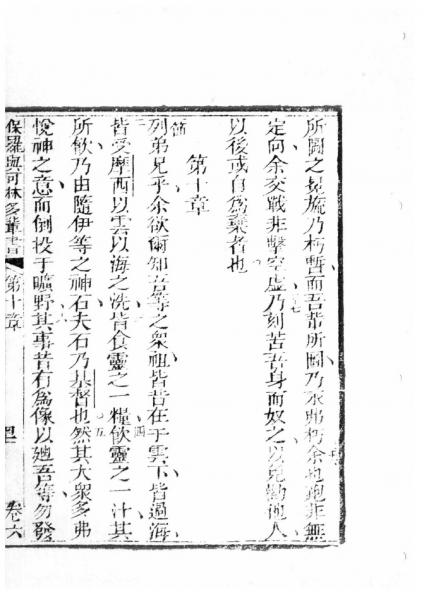 所圖之冕旒乃朽暫而吾輩所圖乃永弗朽余也跑非無
定向余交戰非擊空虛乃刻苦吾身而奴之以免勸他人
以後或自為棄者也
第十章
一節
列弟兄乎余欲爾知吾等之眾祖皆昔在于雲下皆過海
皆受摩西以雲以海之洗皆食靈之一糧飲靈之一汁其
所飲乃由隨伊等之神石夫石乃基督也然其大眾多弗
悅神之意而倒投于曠野其事昔有為像以廸吾等勿發
保羅與可林多輩書 第十章 卷六